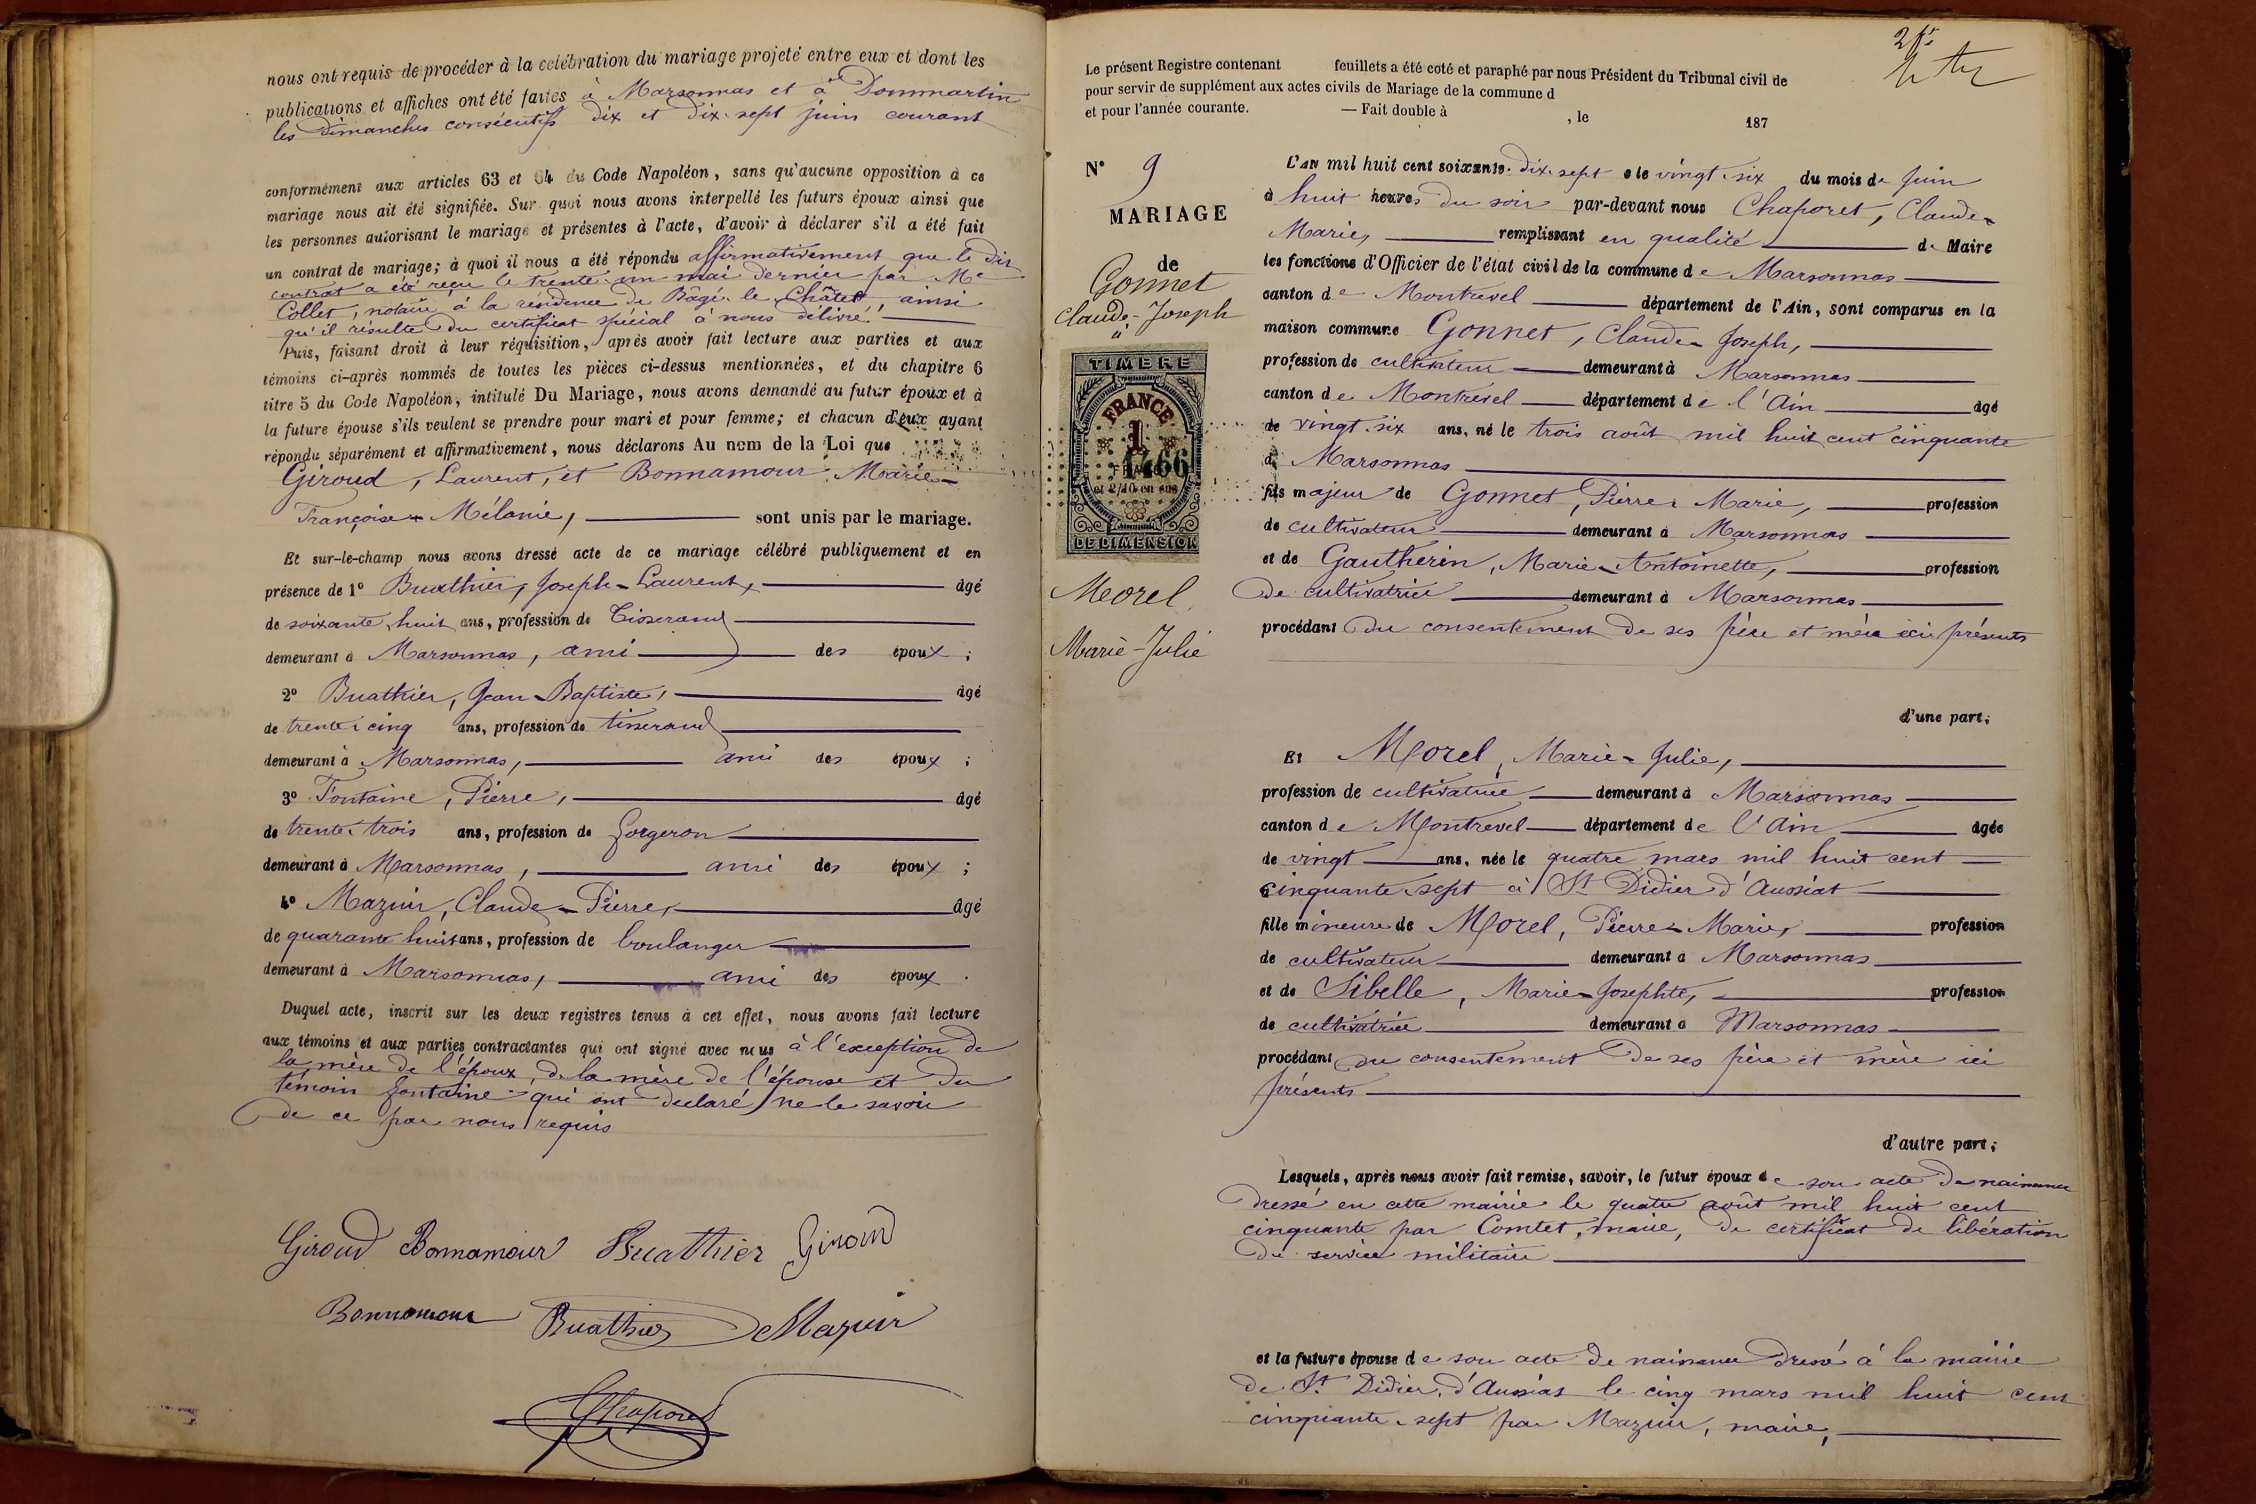 nous ont requis de procéder à la célébration du mariage projeté entre eux et dont les
publications et affiches ont été faites à Marsonnas et à Dommartin
les dimanches consécutifs dix et dix-sept juin courant
conformément aux articles 63 et 64 du Code Napoléon, sans qu'aucune opposition à ce
mariage nous ait été signifiée. Sur quoi nous avons interpellé les futurs époux ainsi que
les personnes autorisant le mariage et présentes à l'acte, d'avoir à déclarer s'il a été fait
un contrat de mariage; à quoi il nous a été répondu affirmativement que le dit
contrat a été reçu le trente un mai dernier par Me
Collet, notaire à la résidence de Bâgé-le-Châtel, ainsi
qu'il résulte du certificat spécial à nous délivré.
Puis, faisant droit à leur réquisition, après avoir fait lecture aux parties et aux
témoins ci-après nommés de toutes les pièces ci-dessus mentionnées, et du chapitre 6
titre 5 du Code Napoléon, intitulé Du Mariage, nous avons demandé au futur époux et à
la future épouse s'ils veulent se prendre pour mari et pour femme; et chacun d'eux ayant
répondu séparément et affirmativement, nous déclarons Au nom de la Loi que
Giroud, Laurent, et Bonnamour Marie-
Françoise-Mélanie, sont unis par le mariage.
Et sur-le-champ nous avons dressé acte de ce mariage célébré publiquement et en
présence de 1° Buathier, Joseph-Laurent, âgé
de soixante huit ans, profession de Tisserand
demeurant à Marsonnas, ami des époux;
2° Buathier, Jean-Baptiste, âgé
de trente cinq ans, profession de tisserand
demeurant à Marsonnas, ami des époux;
3° Fontaine, Pierre, âgé
de trente-trois ans, profession de forgeron
demeurant à Marsonnas, ami des époux;
4° Mazuir, Claude-Pierre, âgé
de quarante huit ans, profession de boulanger
demeurant à Marsonnas, ami des époux.
Duquel acte, inscrit sur les deux registres tenus à cet effet, nous avons fait lecture
aux témoins et aux parties contractantes qui ont signé avec nous à l'exception de
la mère de l'époux, de la mère de l'épouse et du
témoin fontaine qui ont déclaré ne le savoir
de ce par nous requis
Giroud Bonnamour Buathier Giroud
Bonnamour Buathier Mazuir
Chaporet
Le présent Registre contenant feuillets a été coté et paraphé par nous Président du Tribunal civil de
pour servir de supplément aux actes civils de Mariage de la commune d
et pour l'année courante. — Fait double à , le 187
N° 9
MARIAGE
de
Gonnet
Claude-Joseph
à
TIMBRE
FRANCE
1
1466
et 2/10 en sus
DE DIMENSION
Morel
Marie-Julie
L'AN mil huit cent soixante-dix-sept le vingt-six du mois de Juin
à huit heures du soir par-devant nous Chaporet, Claude-
Marie, remplissant en qualité de Maire
les fonctions d'Officier de l'état civil de la commune de Marsonnas
canton de Montrevel département de l'Ain, sont comparus en la
maison commune Gonnet, Claude-Joseph,
profession de cultivateur demeurant à Marsonnas
canton de Montrevel département de l'Ain âgé
de vingt-six ans, né le trois août mil huit cent cinquante
à Marsonnas
fils majeur de Gonnet, Pierre-Marie, profession
de cultivateur demeurant à Marsonnas
et de Gautherin, Marie-Antoinette, profession
de cultivatrice demeurant à Marsonnas
procédant du consentement de ses père et mère ici présents
d'une part;
Et Morel, Marie-Julie,
profession de cultivatrice demeurant à Marsonnas
canton de Montrevel département de l'Ain âgée
de vingt ans, née le quatre mars mil huit cent
cinquante-sept à St Didier d'Aussiat
fille mineure de Morel, Pierre-Marie, profession
de cultivateur demeurant à Marsonnas
et de Sibelle, Marie-Josephte, profession
de cultivatrice demeurant à Marsonnas
procédant du consentement de ses père et mère ici
présents
d'autre part;
Lesquels, après nous avoir fait remise, savoir, le futur époux de son acte de naissance
dressé en cette mairie le quatre août mil huit cent
cinquante par Comtet, maire, de certificat de libération
du service militaire
et la future épouse de son acte de naissance dressé à la mairie
de St Didier d'Aussiat le cinq mars mil huit cent
cinquante-sept par Mazuir, maire,